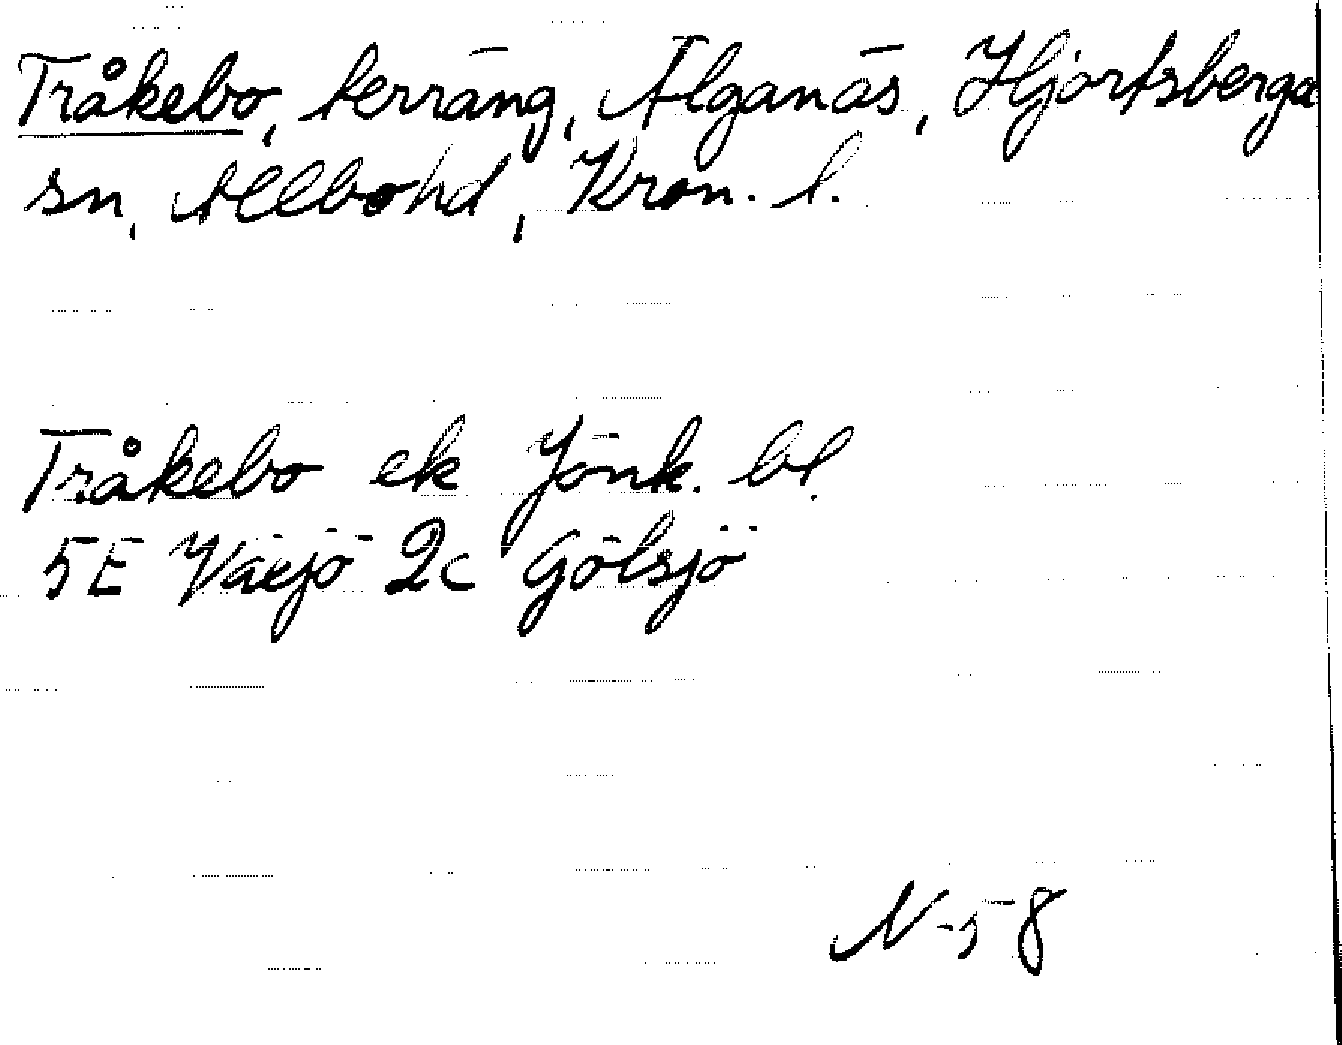 Tråkebo, terräng, Älganäs, Hjortsberga
sn, Allbo hd, Kron. l.
Tråkebo ek Jönk. bl.
5E Växjö 2c Gölsjö
N-58